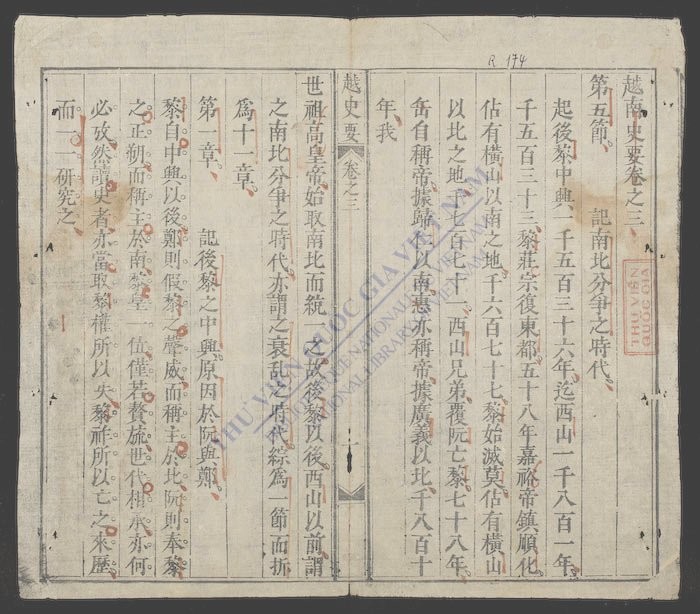 R 174
越南史要卷之三
第五節 記南北分爭之時代
起後黎中興一千五百三十六年迄西山一千八百一年
千五百三十三黎莊宗復東都五十八年嘉裕帝鎮順化
佔有橫山以南之地千六百七十七黎始滅莫佔有橫山
以北之地千七百七十一西山兄弟覆阮亡黎七十八年
岳自稱帝據歸仁以南惠亦稱帝據廣義以北千八百十
年我
越史要 卷之三 一
世祖高皇帝始取南北而統一之故後黎以後西山以前謂
之南北分爭之時代亦謂之衰乱之時代綜爲一節而折
爲十一章
第一章 記後黎之中興原因於阮與鄭
黎自中興以後鄭則假黎之聲威而稱主於北阮則奉黎
之正朔而稱主於南黎皇一位僅若贅旒世代相承亦何
必攷然讀史者亦當取黎權所以失黎祚所以亡之來歷
而一一研究之
THƯ VIỆN
QUỐC GIA
THƯ VIỆN QUỐC GIA VIỆT NAM
NATIONAL LIBRARY OF VIETNAM